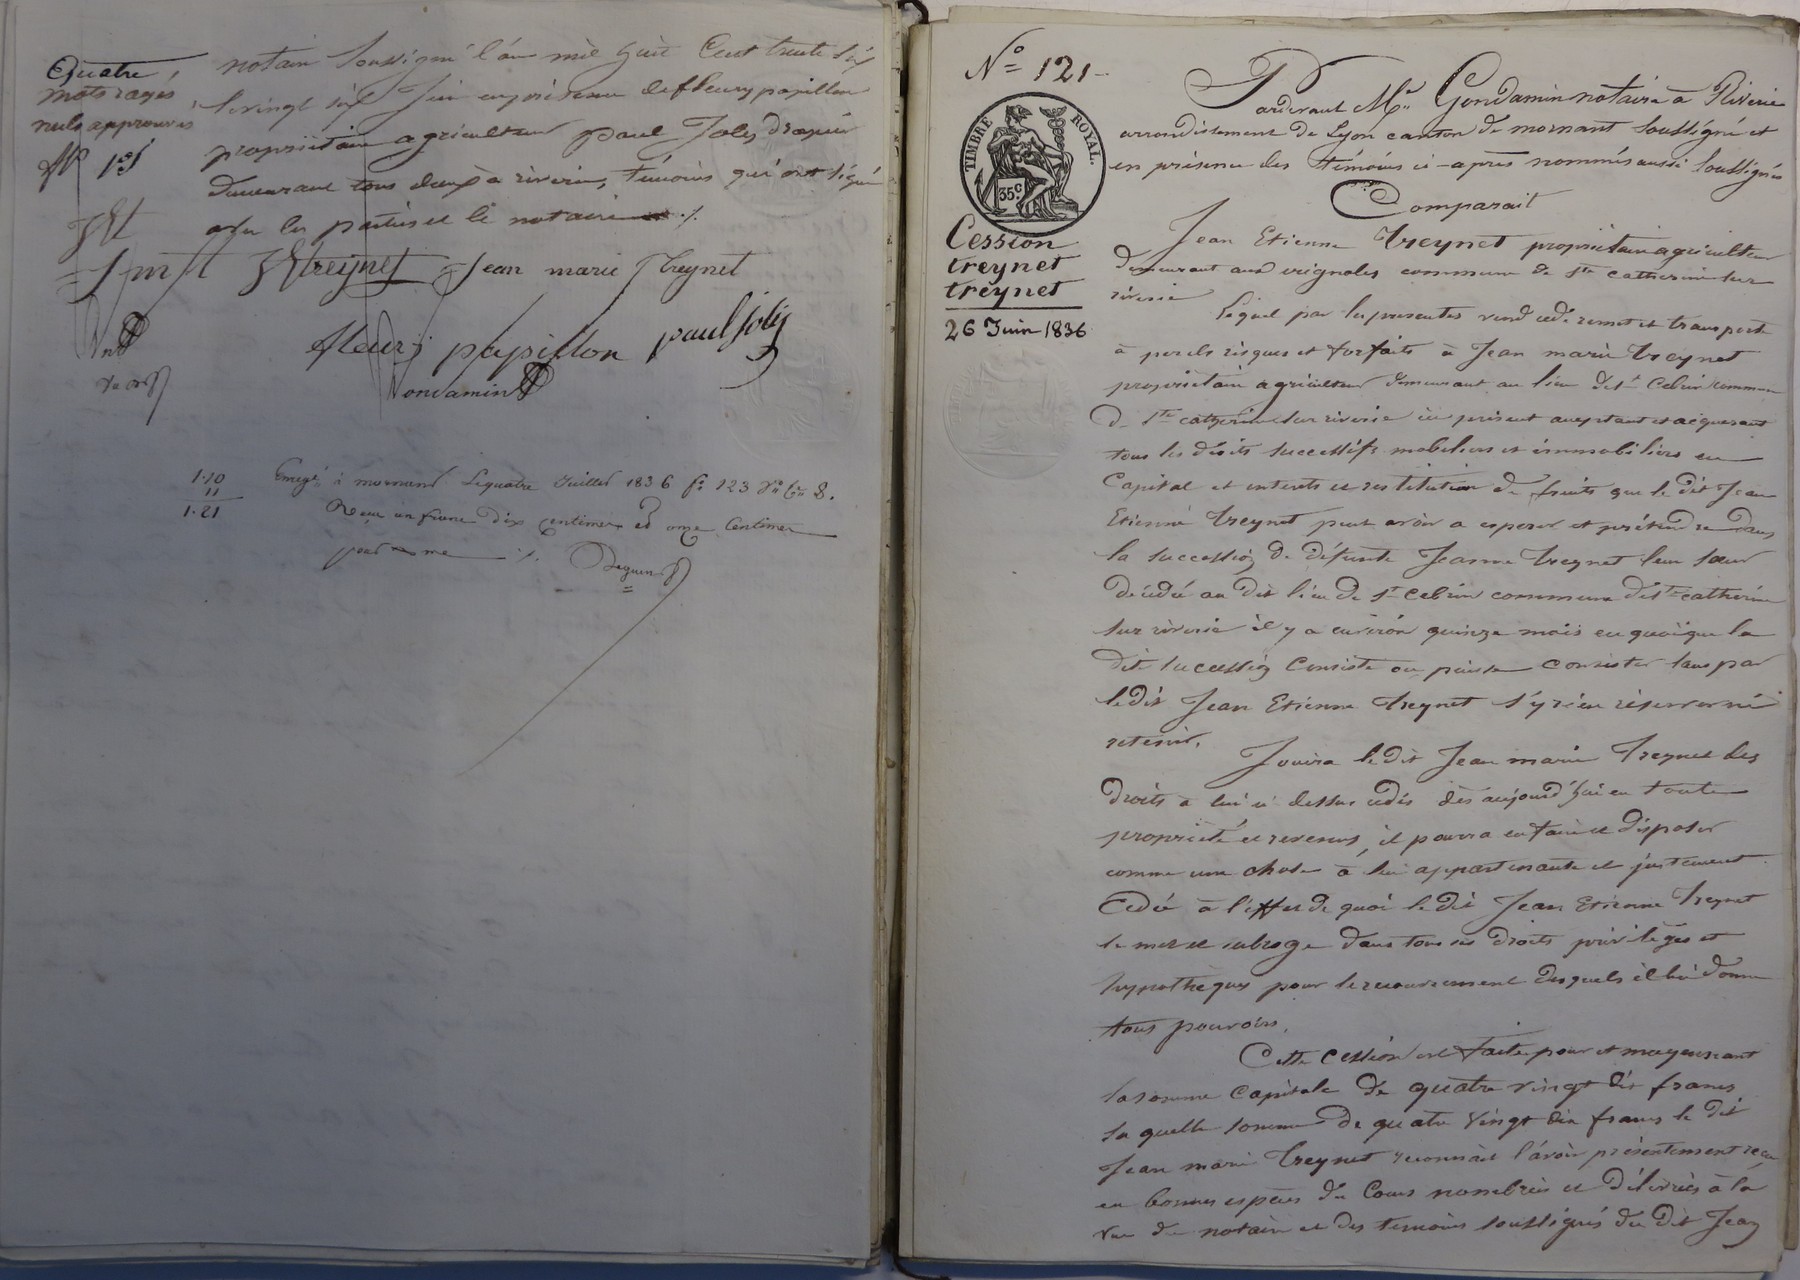 Quatre
mots rayés
nuls approuvés
notaire soussigné l'an mil huit Cent trente six
le vingt six Juin en présence de fleury papillon
propriétaire agriculteur paul Joly drapier
demeurant tous deux à riverie, témoins qui ont signé
avec les parties et le notaire ./.
J M t JEtreynet Jean marie Treynet
fleury papillon paul joly
Gondamin
1.10
11
1.21
Enregé à mornant Le quatre Juillet 1836 fo 123 Vo Ce 8.
Reçu un franc dix centimes et onze Centimes
pour me ./. Deguin
No = 121 -
TIMBRE ROYAL.
35 c.
Cession
treynet
treynet
26 Juin 1836
Pardevant Me Gondamin notaire à Riverie
arrondissement de Lyon canton de mornant soussigné et
en présence des témoins ci-après nommés aussi soussignés
Comparait
Jean Etienne treynet propriétaire agriculteur
demeurant aux commune de Ste catherine sur
riverie
Lequel par les presentes vend cede remet et transporte
à perils risques et forfaits à Jean marie treynet
propriétaire agriculteur demeurant au lieu de st Celrin commune
de Ste catherine sur riverie ici présent acceptant et acquerant
tous les droits successifs mobiliers et immobiliers en
Capital et interets et restitution de fruits que le dit Jean
Etienne treynet peut avoir a esperer et prétendre dans
la succession de défunte Jeanne treynet leur sœur
décédée au dit lieu de st Celrin commune de Ste catherine
sur riverie il y a environ quinze mois en quoique la
dite succession Consiste ou puisse consister sans par
le dit Jean Etienne treynet s'y rien réserver ni
retenir.
Jouira le dit Jean marie Treynet des
droits à lui ci dessus cedés dès aujourd'hui en toute
propriété et revenus, il pourra en faire et disposer
comme une chose à lui appartenante et justement
Cedée à l'effet de quoi le dit Jean Etienne Treynet
le met et subroge dans tous ses droits privilèges et
hypothèques pour le recouvrement desquels il lui donne
tous pouvoirs.
Cette cession est faite pour et moyennant
la somme Capitale de quatre vingt dix francs
la quelle somme de quatre vingt dix francs le dit
Jean marie treynet reconnait l'avoir présentement reçu
en bonnes espèces du Cours nombrées et délivrées à la
vue du notaire et des temoins soussignés du dit Jean